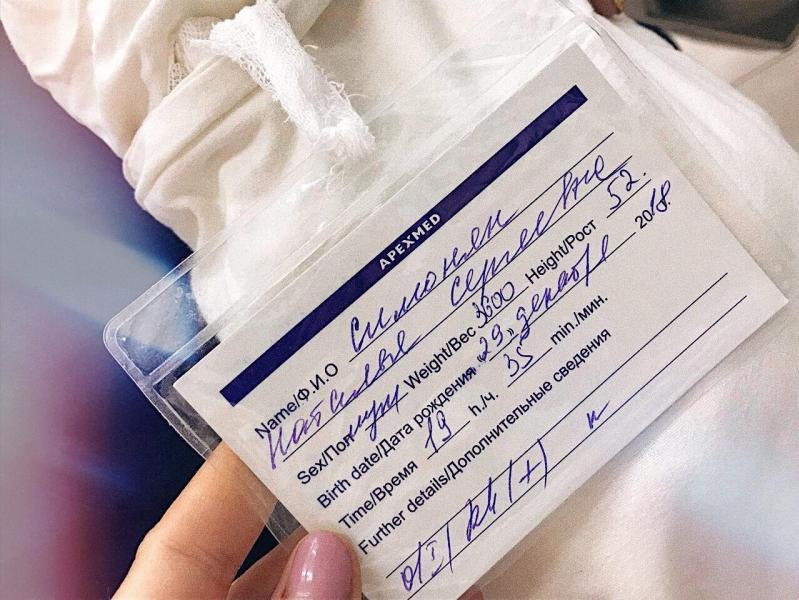 APEXMED
Name/Ф.И.О Симонян
Наталья Сергеевне
Sex/Пол муж Weight/Вес 3600 Height/Рост 52.
Birth date/Дата рождения „29„ декабря 2018.
Time/Время 19 h./ч. 35 min./мин.
Further details/Дополнительные сведения
0(I) Rh(+)